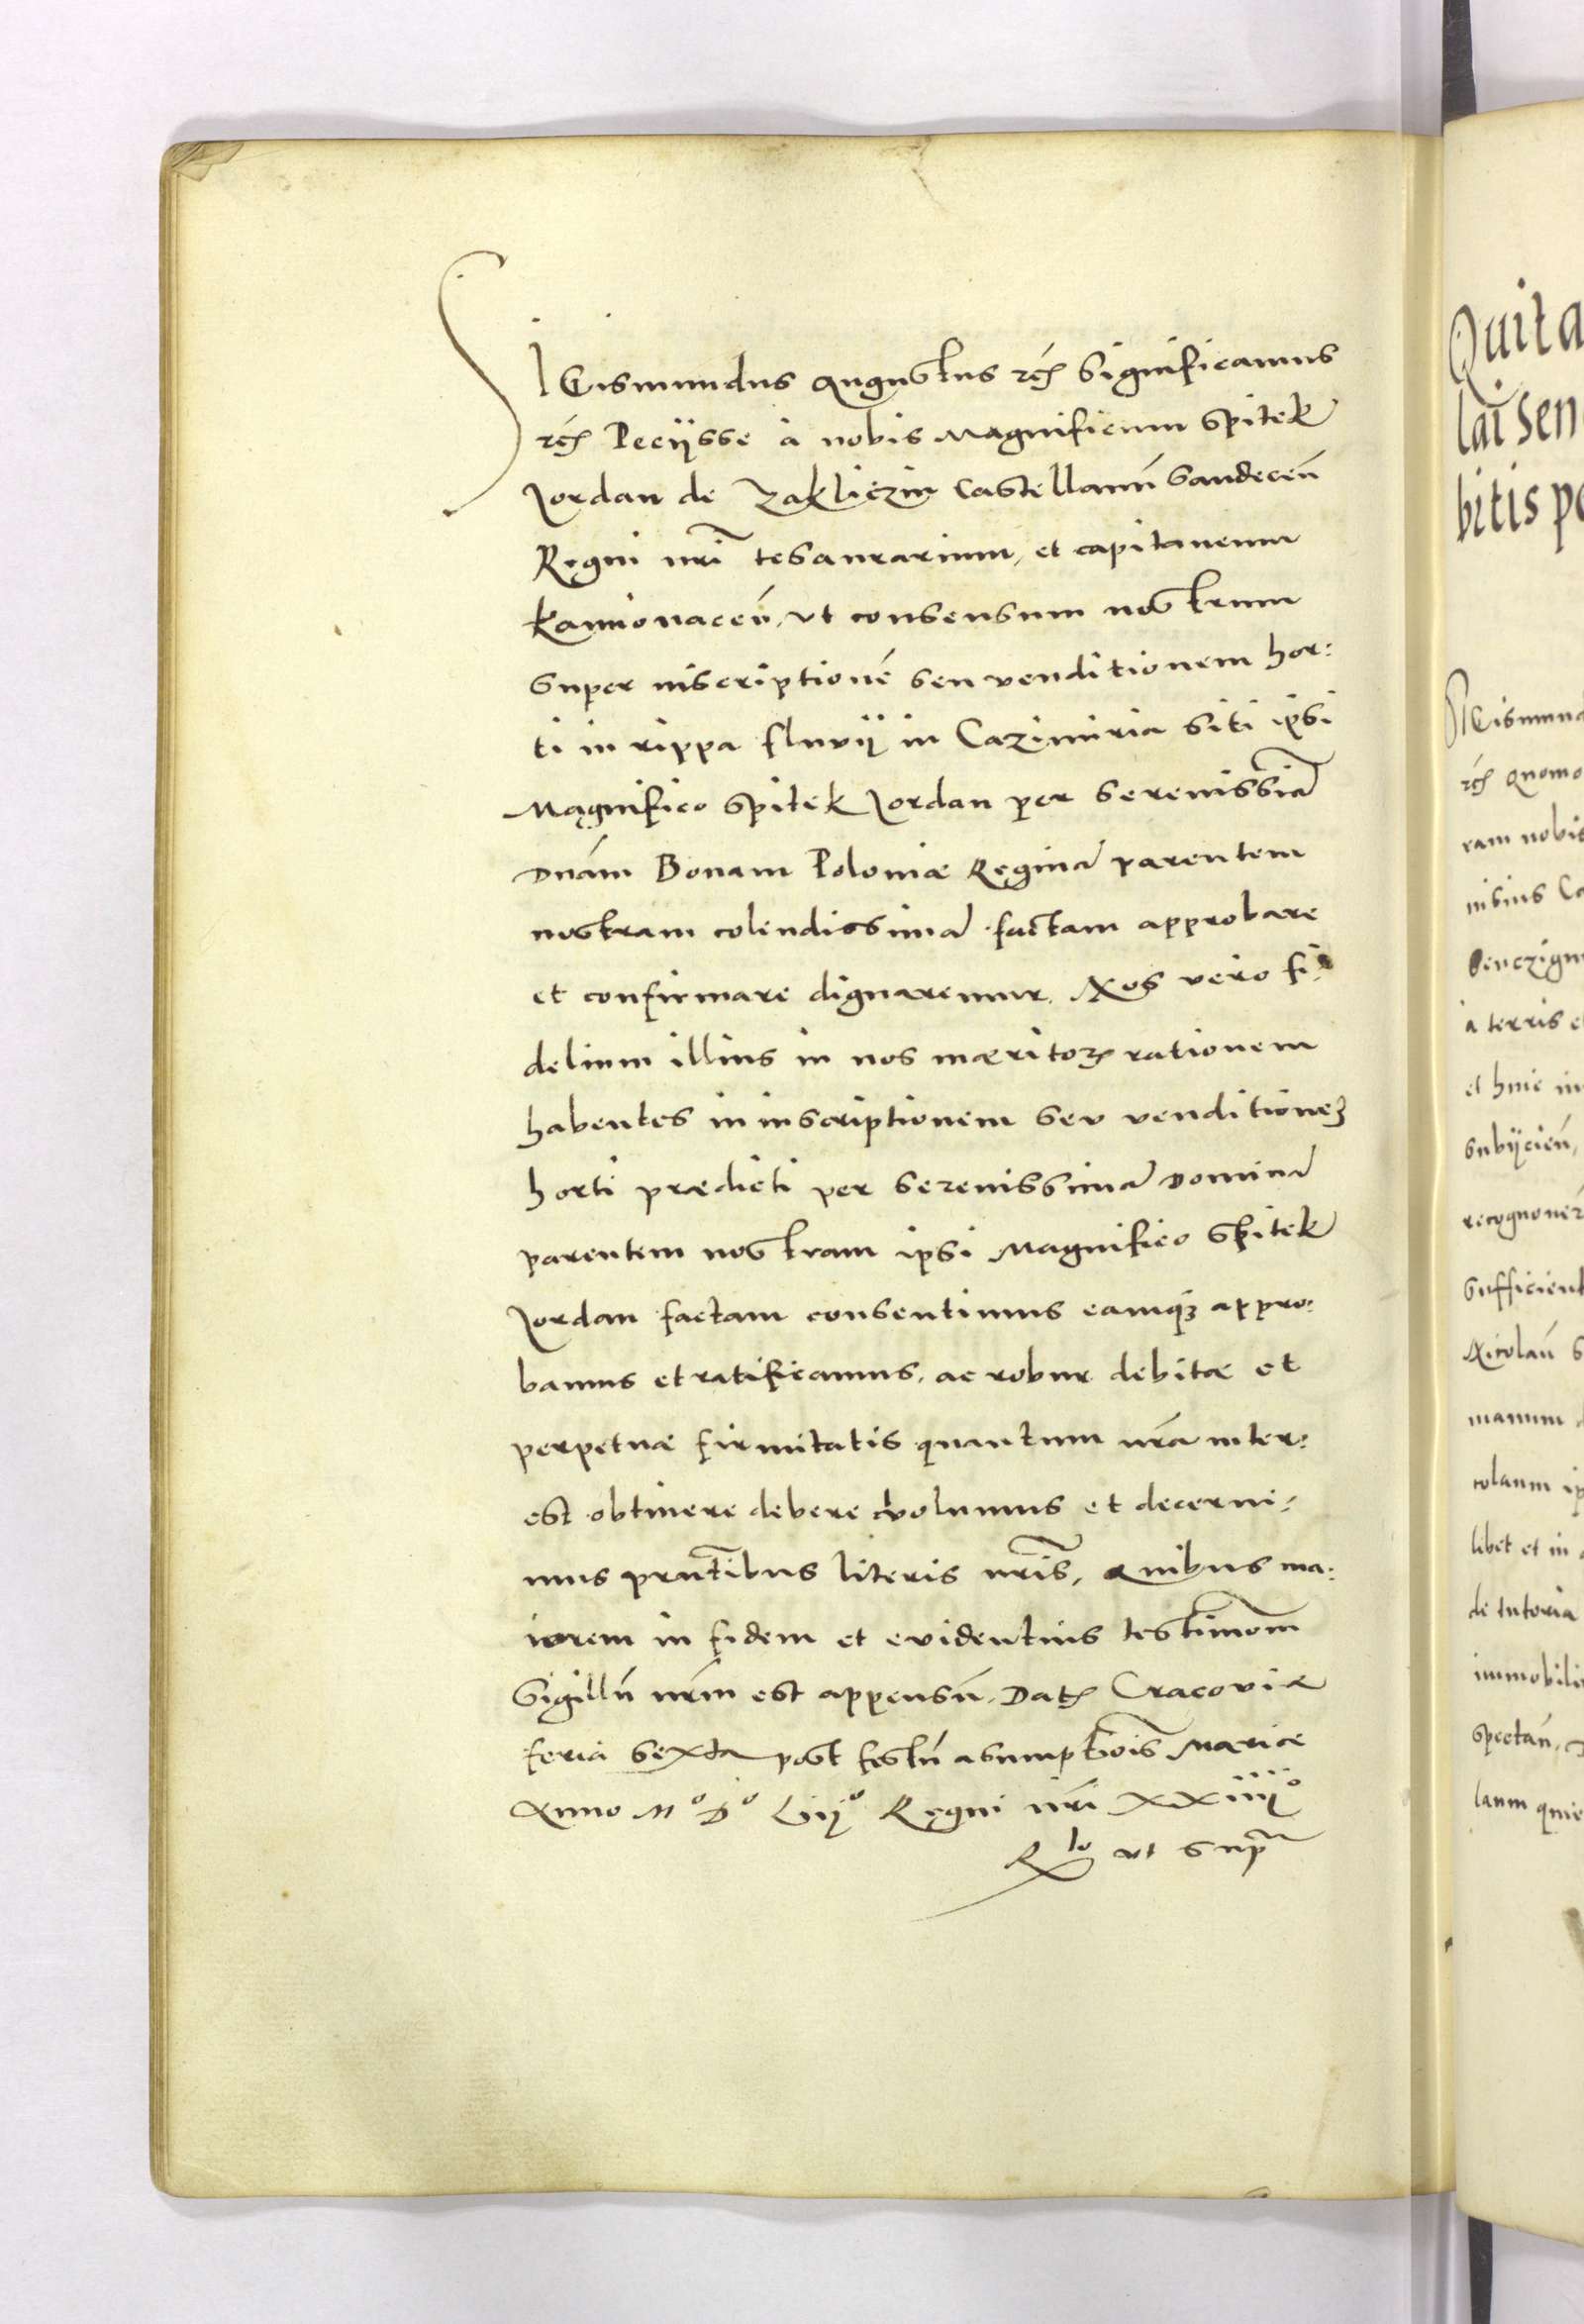 SIGismundus Augustus rcz Significamus
rcz Peciisse à nobis Magnificum Spitek
Jordan de Zakliczin Castellanū Sandeceñ
Regni nrĩ tesaurarium, et capitaneum
Kamionaceñ, ut consensum nostrum
super inscriptionẽ seu venditionem hor:
ti in rippa fluvii in Cazimiria siti ipsi
Magnifico Spitek Jordan per Serenissiã
Dnãm Bonam Poloniæ Reginã parentem
nostram colendissimã factam approbare
et confirmare dignaremur. Nos vero fi:
delium illius in nos mæritoꝝ rationem
habentes in inscriptionem seu venditioneꝫ
horti prædicti per Serenissimã Dominã
parentem nostram ipsi Magnifico Spitek
Jordan factam consentimus eamqꝫ appro:
bamus et ratificamus, ac robur debitæ et
perpetuæ firmitatis quantum nrã inter:
est obtinere debere volumus et decerni:
mus prñtibus literis nrĩs, Quibus ma:
iorem in fidem et evidentius testimoñm
Sigillũ nrm̃ est appensũ. Datꝫ Cracoviæ
feria sexta post festũ asumptiõis Mariæ
Anno Mº Dº Liijº Regni nrĩ XXiiijº
Rlo ut supra
Quita
lai Sen
bitis pe
SIGismund
rcz Quomo
ram nobis
nisius Ca
à terris e
et huic in
subiicieñ,
recognover
sufficient
Nicolaũ S
manum
colaum ip
libet et in
de tutoria
immobili
spectañ,
laum quie